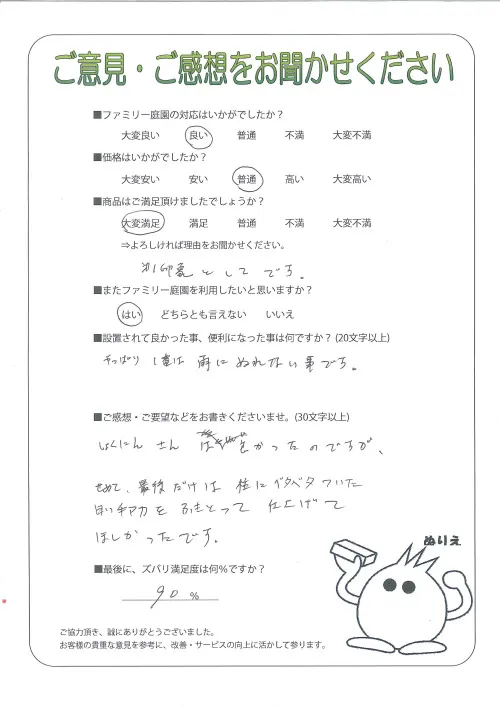 ご意見・ご感想をお聞かせください
■ファミリー庭園の対応はいかがでしたか？
大変良い 良い 普通 不満 大変不満
■価格はいかがでしたか？
大変安い 安い 普通 高い 大変高い
■商品はご満足頂けましたでしょうか？
大変満足 満足 普通 不満 大変不満
⇒よろしければ理由をお聞かせください。
第1印象としてです。
■またファミリー庭園を利用したいと思いますか？
はい どちらとも言えない いいえ
■設置されて良かった事、便利になった事は何ですか？(20文字以上)
やっぱり1番は雨にぬれない事です。
■ご感想・ご要望などをお書きくださいませ。(30文字以上)
しょくにんさんは良かったのですが、
せめて、最後だけは柱にベタベタついた
手アカをふきとって仕上げて
ほしかったです。
■最後に、ズバリ満足度は何％ですか？
90 %
ぬりえ
ご協力頂き、誠にありがとうございました。
お客様の貴重な意見を参考に、改善・サービスの向上に活かして参ります。